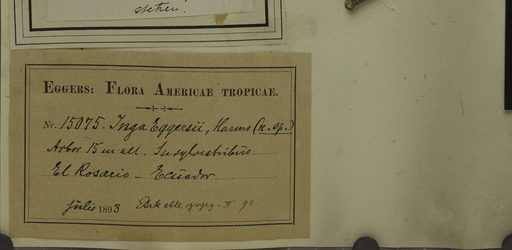 stehen!
EGGERS: FLORA AMERICAE TROPICAE.
Nr. 15075. Inga Eggersii, Harms (n. sp.)
Arbor 15 m alt. In sylvestribus
El Rosario - Ecuador
julio 1893